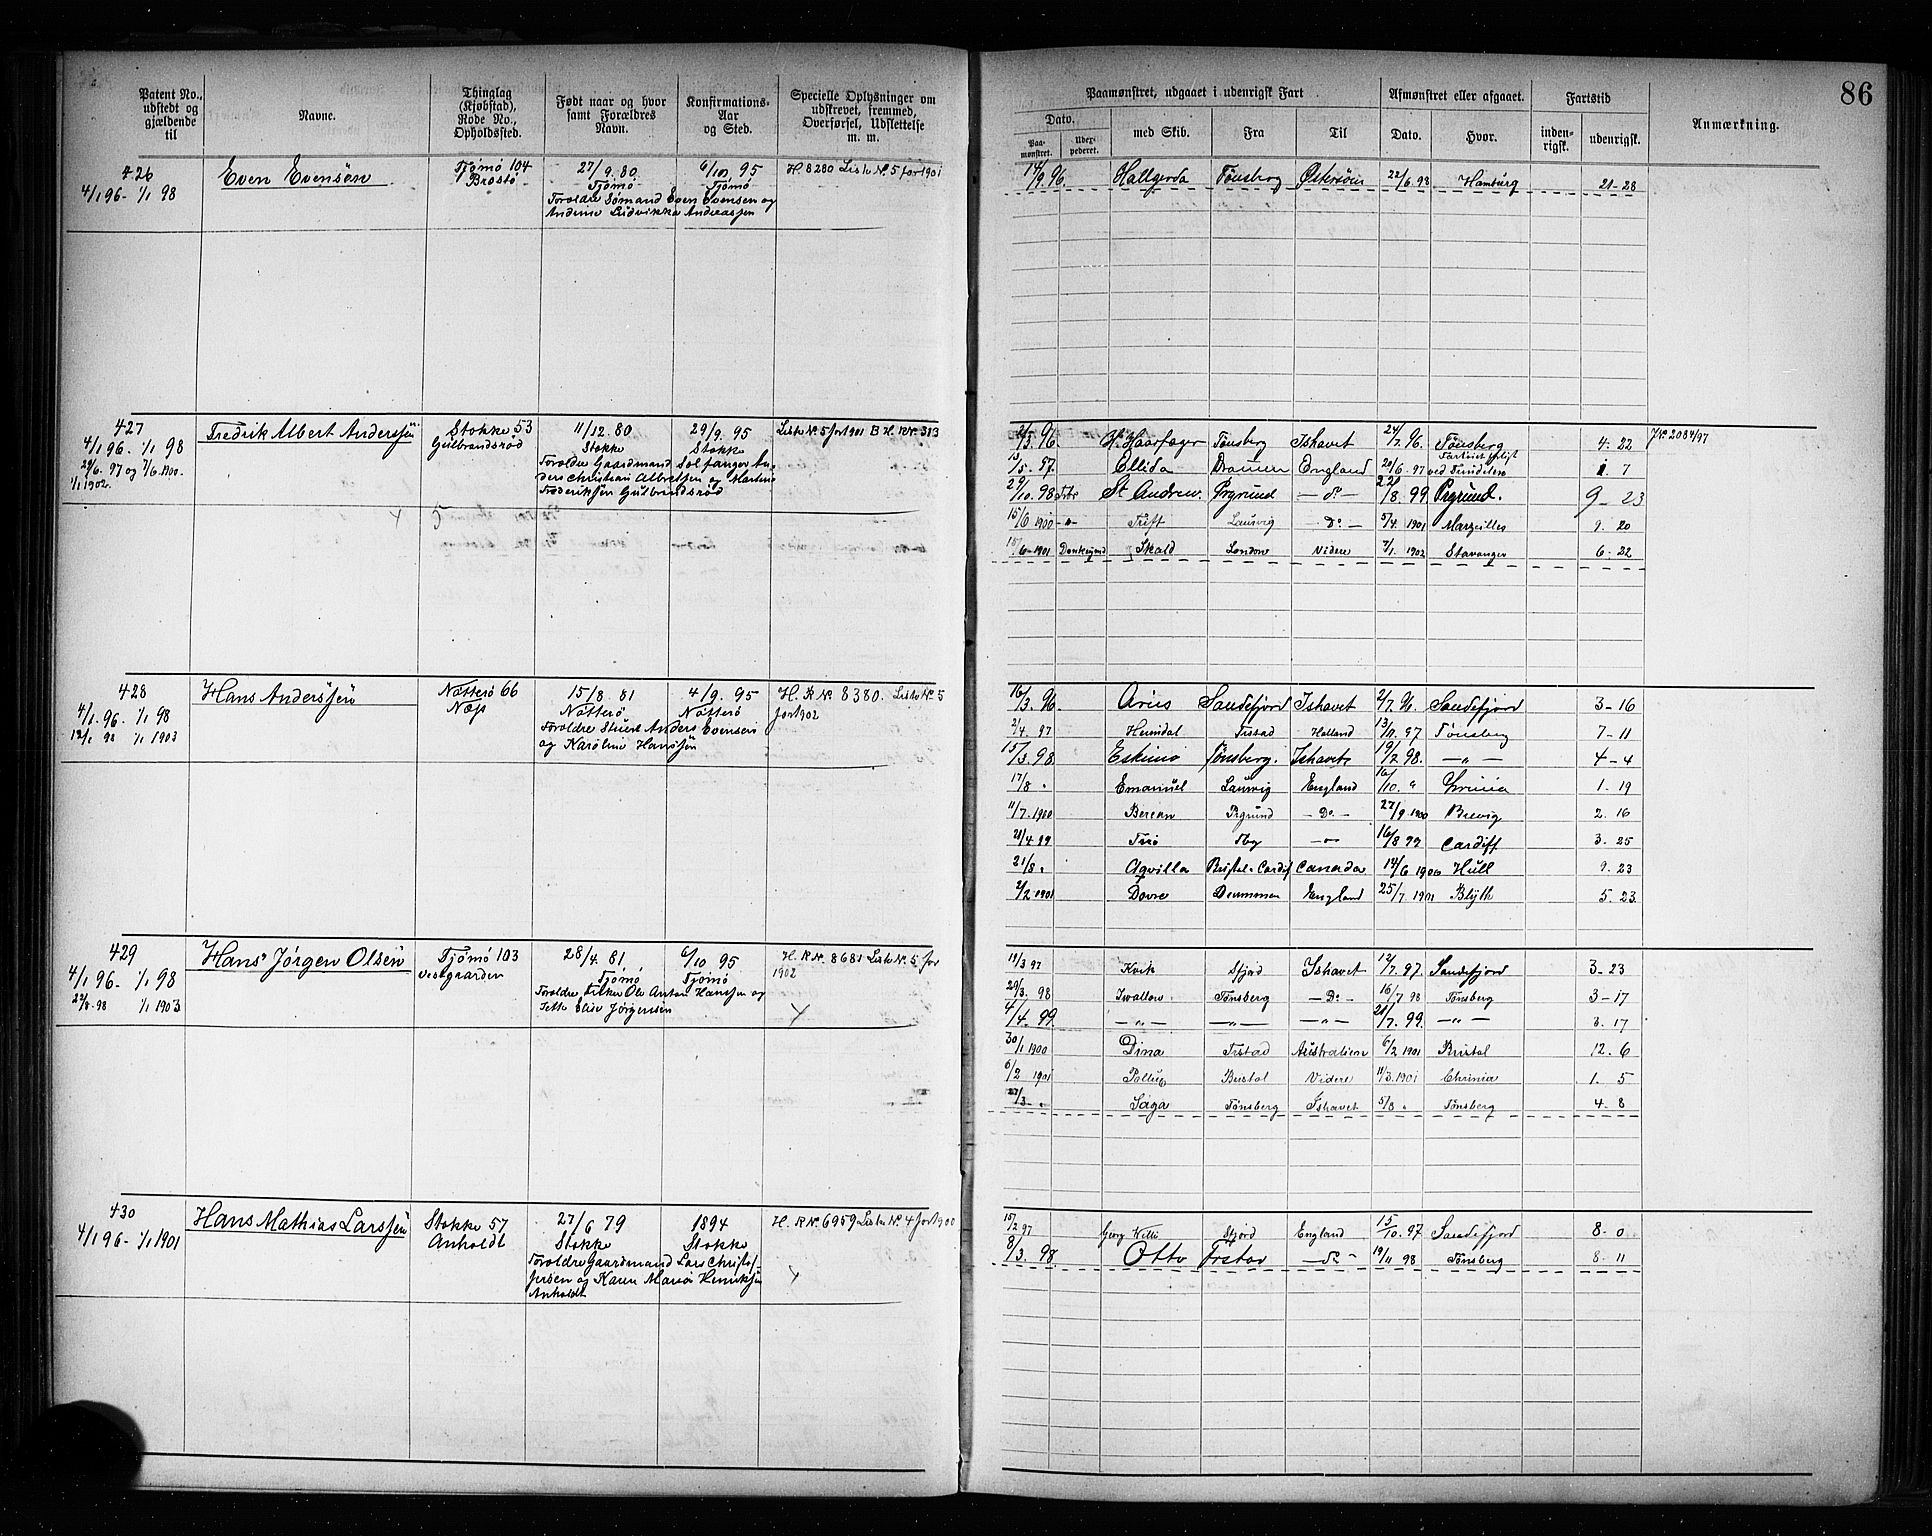 86
Patent No., udstedt og gjældende til
Navne.
Thinglag (Kjøbstad), Rode No., Opholdssted.
Født naar og hvor samt Forældres Navn.
Konfirmations-Aar og Sted.
Specielle Oplysninger om udskrevet, fremmed, Overførsel, Udslettelse m. m.
Paamønstret, udgaaet i udenrigsk Fart
Afmønstret eller afgaaet.
Fartstid
Anmærkning.
Dato.
Paa-mønstret.
Udex-pederet.
med Skib.
Fra
Til
Dato.
Hvor.
inden-rigsk.
udenrigsk.
426
4/1 96 - 1/1 98
Even Evensøn
Tjømø 104
Brøstø
27/9. 80.
Tjømø
6/10. 95
Tjømø
Forældre Sømand Even Evensen og
Andrine Ludvikka Andreassen
H 8280 Liste N. 5 for 1901
14/9. 96. Hallgerda Tønsberg Østersøen 22/6 98 Hamburg 21-28
427
4/1 96. 1/1 98
29/6. 97 og 7/6 1900.
1/1 1902.
Fredrik Albert Anderssen
Stokke 53
Gulbrandsrød
11/12. 80
Stokke
29/9. 95
Stokke
Forældre Gaardmand Sølfanger An-
ders Christian Albertsen og Martine
Frederiksen Gulbrandsrød
Liste N. 5 for 1901 B H. R. Nr. 313
5
/3. 96. H. Haarfager Tønsberg Ishavet 24/7. 96. Tønsberg 4. 22 J.N. 2084/97
13/5. 97. Ellida Drammen England 20/6. 97 1 7
29/10. 98 St Andrew. Prgrund — do — 22/8. 99. Prgrund. 9 - 23
15/6 1900 -"- Trift Laurvig — Do — 5/4. 1901 Marseilles 9. 20
15/6 1901 Skald London Videre 7/1. 1902 Stavanger 6. 22
428
4/1. 96. 1/1 98
12/1 98 1/1 1903
Hans Anderssen
Nøtterø 66
Næs
15/8. 81
Nøtterø
4/9. 95
Nøtterø
Forældre Stuert Anders Evensen
og Karoline Hanssen
H. R N. 8380. Liste N. 5
for 1902
16/3. 96. Arius Sandefjord Ishavet 2/7. 96. Sandefjord 3-16
2/4. 97 Heimdal Frstad Holland 13/11. 97 Tønsberg 7-11
15/3. 98 Eskimo Tønsberg. Ishavet 19/7 98. — " — 4-4
17/8 " Emanuel Laurvig England 16/10. " Grimia 1. 19
11/7. 1900 Bercan Prgrund — Do — 27/9. 1900 Brevig 2. 16
21/4 99 Trio Tbg — " — 16/8 99 Cardiff 3. 25
21/8 " Aqvilla Bristol - Cardiff Canada 14/6 1900 Hull 9. 23
2/2 1901 Dovre Drammen England 25/7. 1901 Blyth 5. 23
429
4/1 96 - 1/1 98
22/8. 98 1/1 1903
Hans Jørgen Olsen
Tjømø 103
Vestgaarden
28/4. 81
Tjømø
6/10 95
Tjømø
Forældre Fisker Ole Anton Hanssen og
Jette Elise Jørgensen
H. R N. 8681 Liste N. 5 for
1902
19/3 97 Kvik Sfjord Ishavet 12/7. 97. Sandefjord 3-23
29/3. 98 Swallow Tønsberg — Do — 16/7 98 Tønsberg 3-17
4/4. 99. — " — — " — — " — 21/7. 99. — " — 3. 17
30/1 1900 Dina Frstad Australien 6/2 1901 Bristol 12. 6
6/2 1901 Pollux Bristol Videre 11/3. 1901 Chrinia 1. 5
27/3 " Saga Tønsberg Ishavet 5/8 " Tønsberg 4. 8
430
4/1 96 - 1/1 1901
Hans Mathias Larssen
Stokke 57
Anholdt
27/6 79
Stokke
1894
Stokke
Forældre Gaardmand Lars Christof-
fersen og Karen Marie Henriksen
Anholdt
H. R N. 6959 Liste N. 4 for 1900
15/2 97 Georg Willi Sfjord England 15/10. 97 Sandefjord 8-0
8/3. 98. Otto Frstad — do — 19/11 98 Tønsberg 8-11